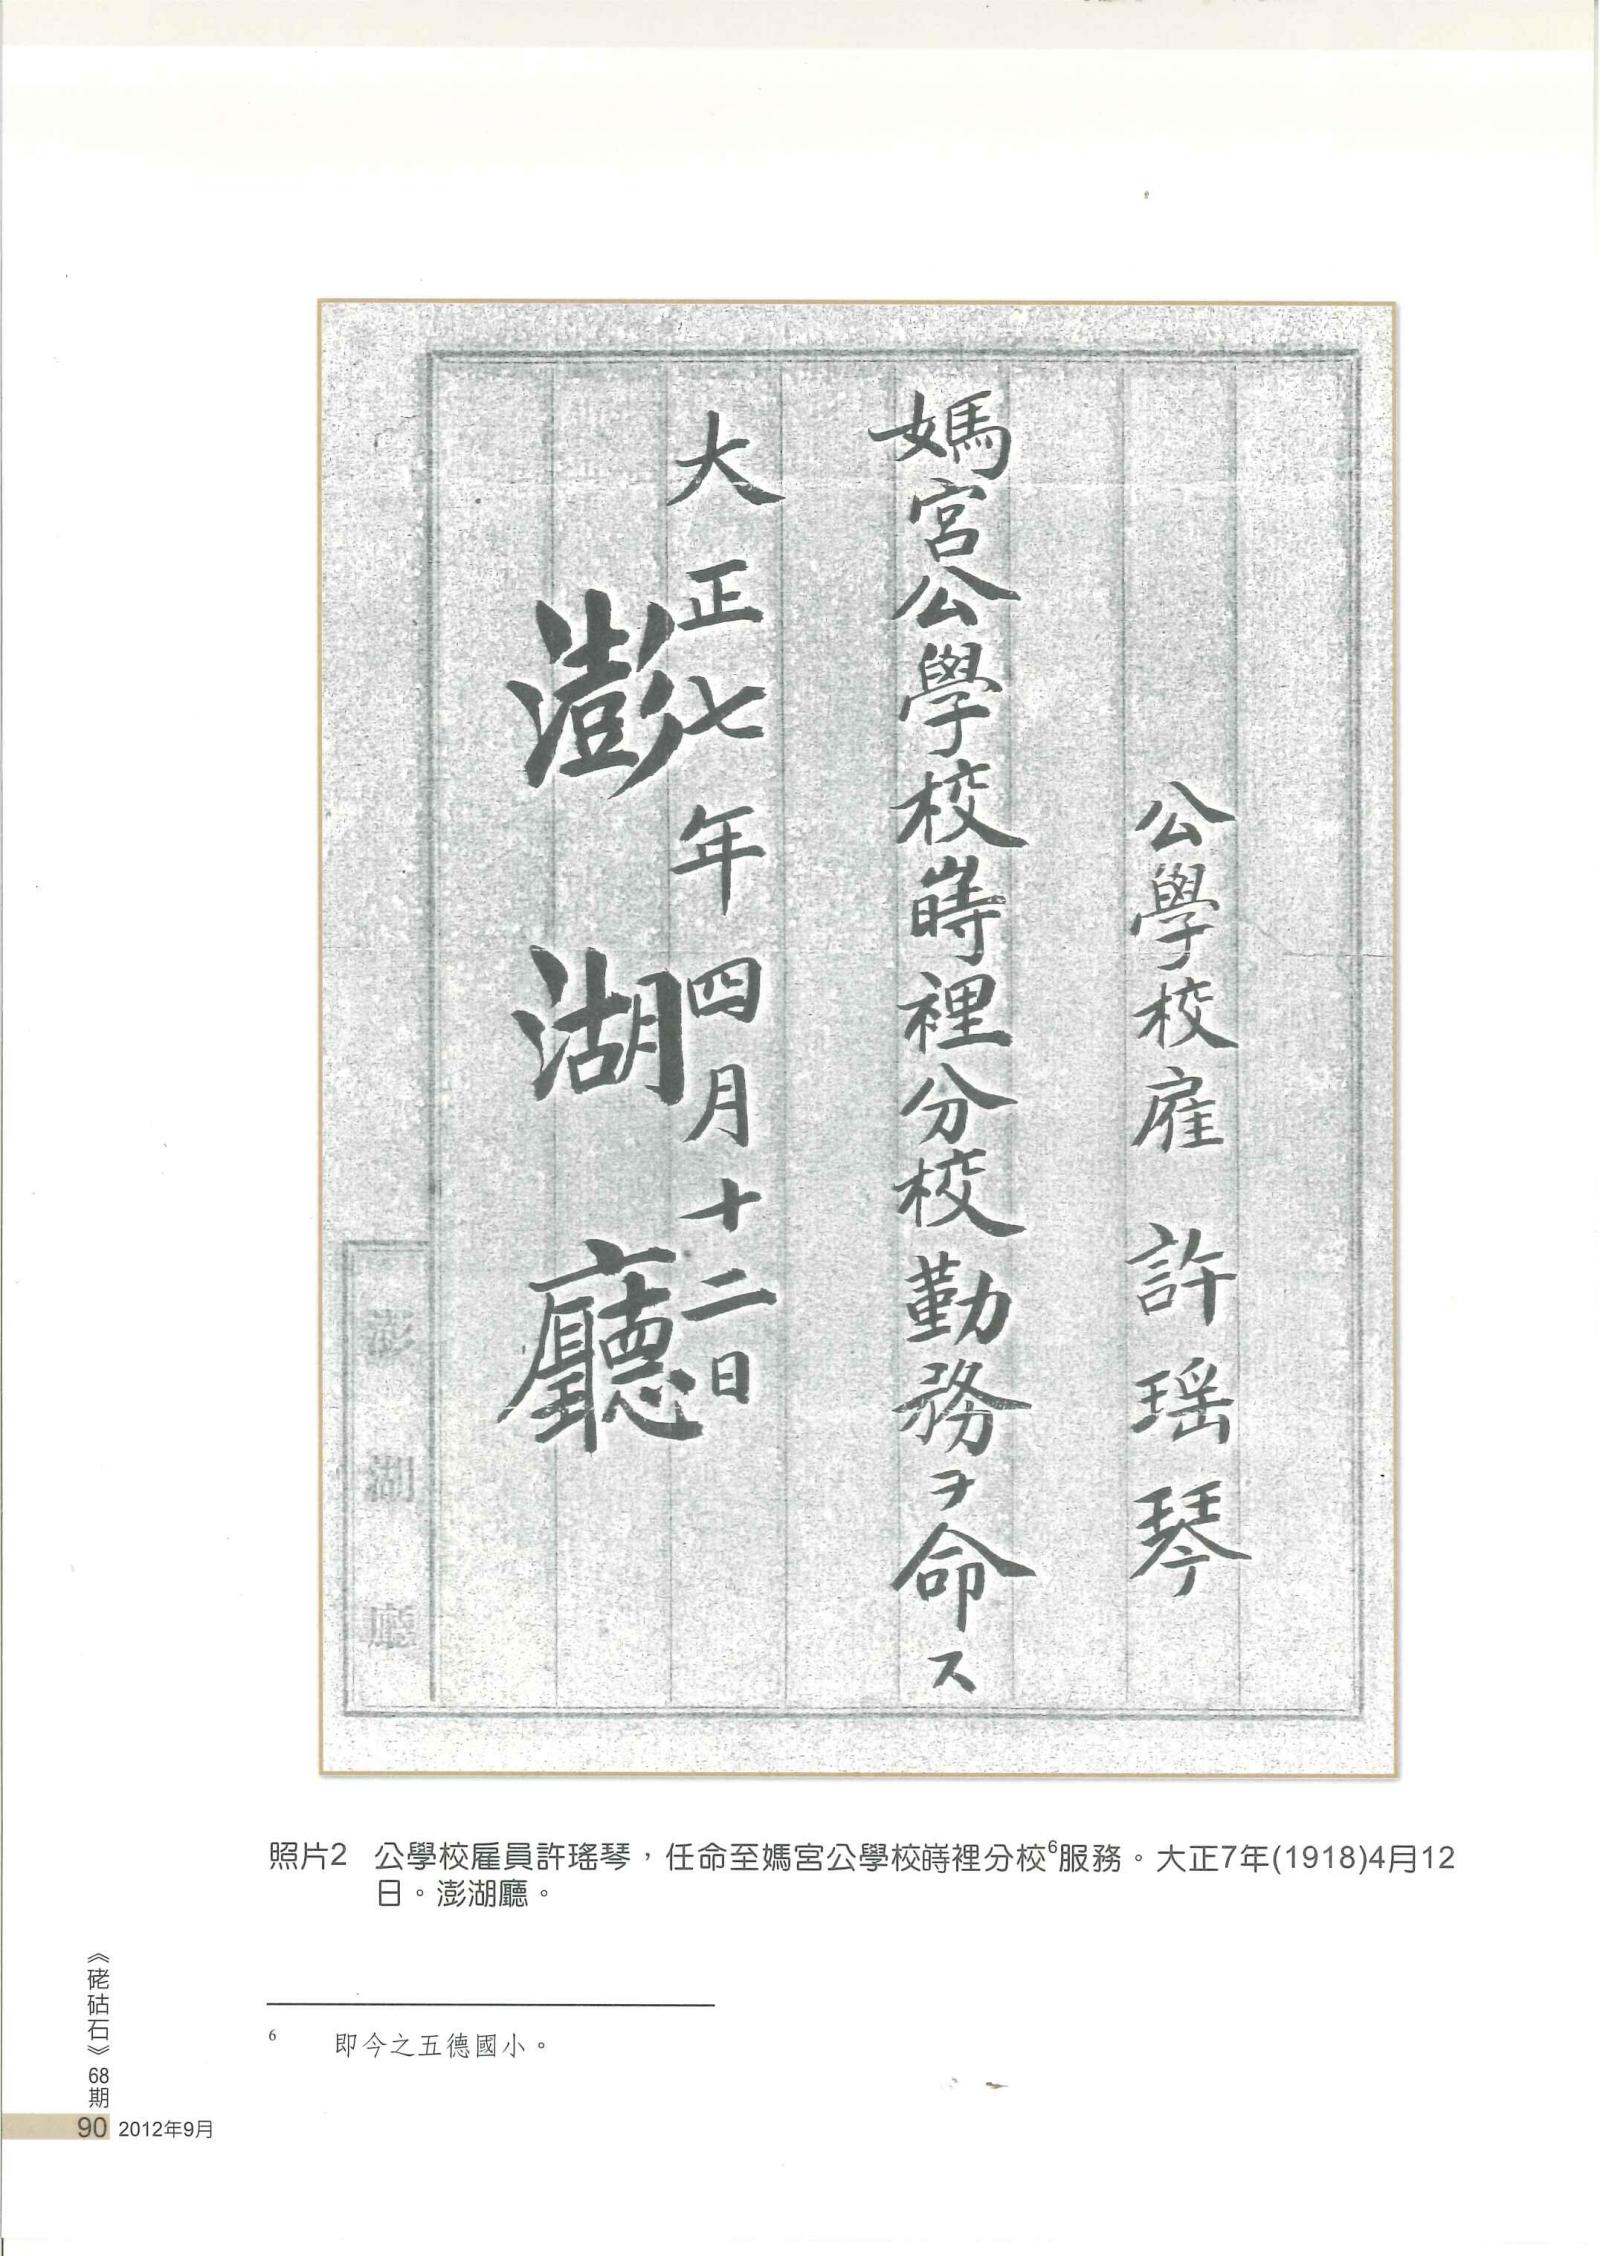 公學校雇 許瑶琴
媽宮公學校嵵裡分校勤務ヲ命ス
大正七年四月十二日
澎湖廳
澎湖廳
照片2 公學校雇員許瑤琴，任命至媽宮公學校嵵裡分校6服務。大正7年(1918)4月12
日。澎湖廳。
6 即今之五德國小。
《硓𥑮石》68期
90 2012年9月